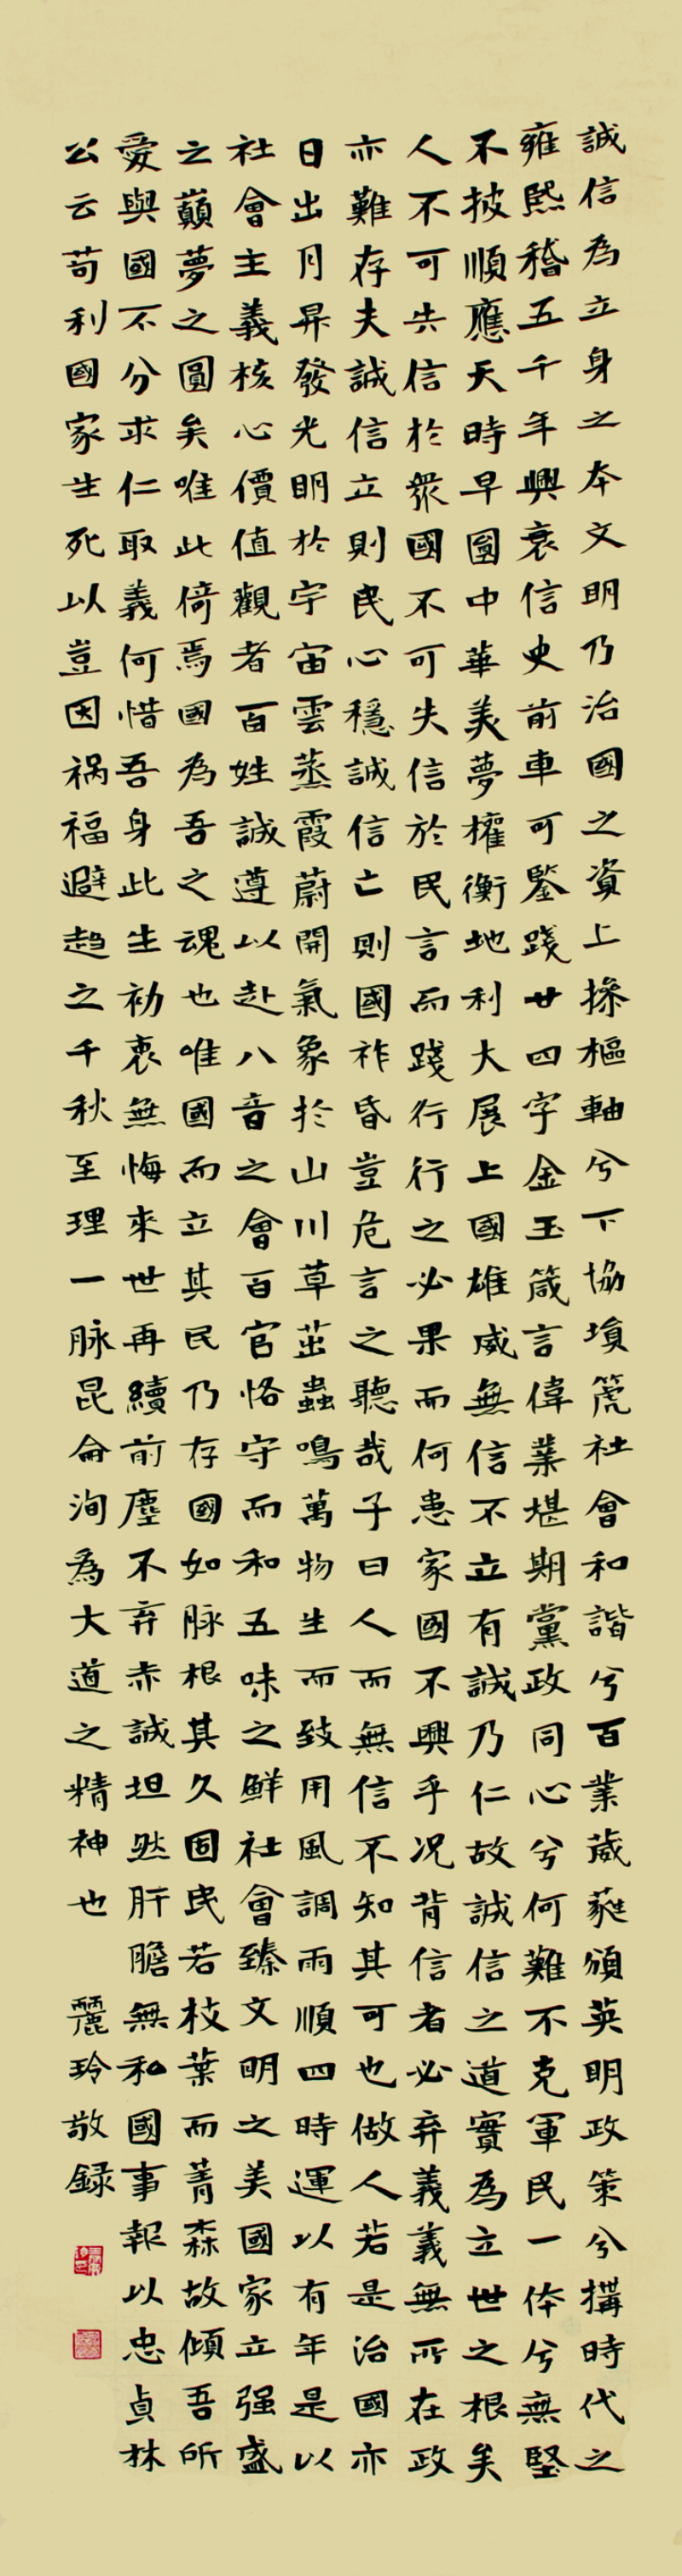 誠信為立身之本文明乃治國之資上操樞軸兮下協塤箎社會和諧兮百業葳蕤頒英明政策兮搆時代之
雍熙稽五千年興衰信史前車可鑒踐廿四字金玉箴言偉業堪期黨政同心兮何難不克軍民一体兮無堅
不披順應天時早圖中華美夢權衡地利大展上國雄威無信不立有誠乃仁故誠信之道實為立世之根矣
人不可失信於眾國不可失信於民言而踐行行之必果而何患家國不興乎况背信者必弃義義無所在政
亦難存夫誠信立則民心穩誠信亡則國祚昏豈危言之聽哉子曰人而無信不知其可也做人若是治國亦
日出月昇發光明於宇宙雲蒸霞蔚開氣象於山川草茁蟲鳴萬物生而致用風調雨順四時運以有年是以
社會主義核心價值觀者百姓誠遵以赴八音之會百官恪守而和五味之鮮社會臻文明之美國家立强盛
之巔夢之圓矣唯此倚焉國為吾之魂也唯國而立其民乃存國如脉根其久固民若枝葉而菁森故傾吾所
愛與國不分求仁取義何惜吾身此生初衷無悔來世再續前塵不弃赤誠坦然肝膽無私國事報以忠貞林
公云苟利國家生死以豈因祸福避趋之千秋至理一脉昆侖洵為大道之精神也 麗玲敬録